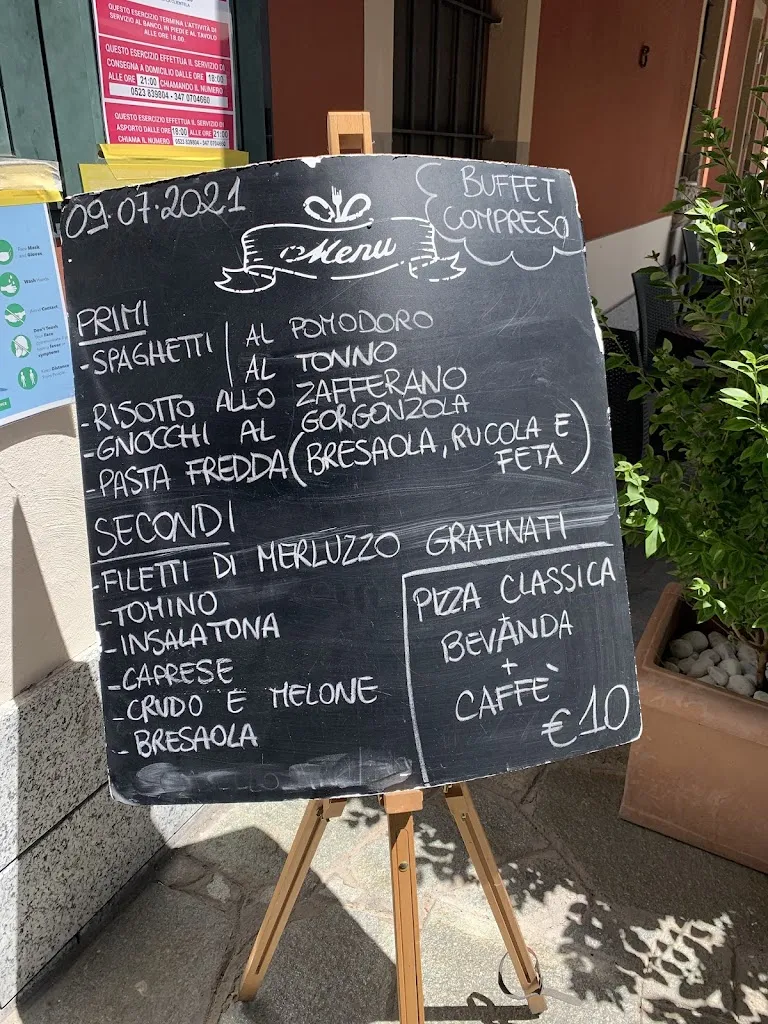 QUESTO ESERCIZIO TERMINA L'ATTIVITÀ DI
SERVIZIO AL BANCO, IN PIEDI E AL TAVOLO
ALLE ORE 18.00
QUESTO ESERCIZIO EFFETTUA IL SERVIZIO DI
CONSEGNA A DOMICILIO DALLE ORE 18:00
ALLE ORE 21:00 CHIAMANDO IL NUMERO
0523 839804 - 347 0704660
QUESTO ESERCIZIO EFFETTUA IL SERVIZIO DI
ASPORTO DALLE ORE 18:00 ALLE ORE 21:00
CHIAMA IL NUMERO
6
09.07.2021
Menu
BUFFET
COMPRESO
PRIMI
-SPAGHETTI AL POMODORO
AL TONNO
-RISOTTO ALLO ZAFFERANO
-GNOCCHI AL GORGONZOLA
-PASTA FREDDA (BRESAOLA, RUCOLA E
FETA)
SECONDI
-FILETTI DI MERLUZZO GRATINATI
-TOMINO
-INSALATONA
-CAPRESE
-CRUDO E MELONE
-BRESAOLA
PIZZA CLASSICA
+
BEVANDA
+
CAFFÈ
€10
Wash
Don't Touch